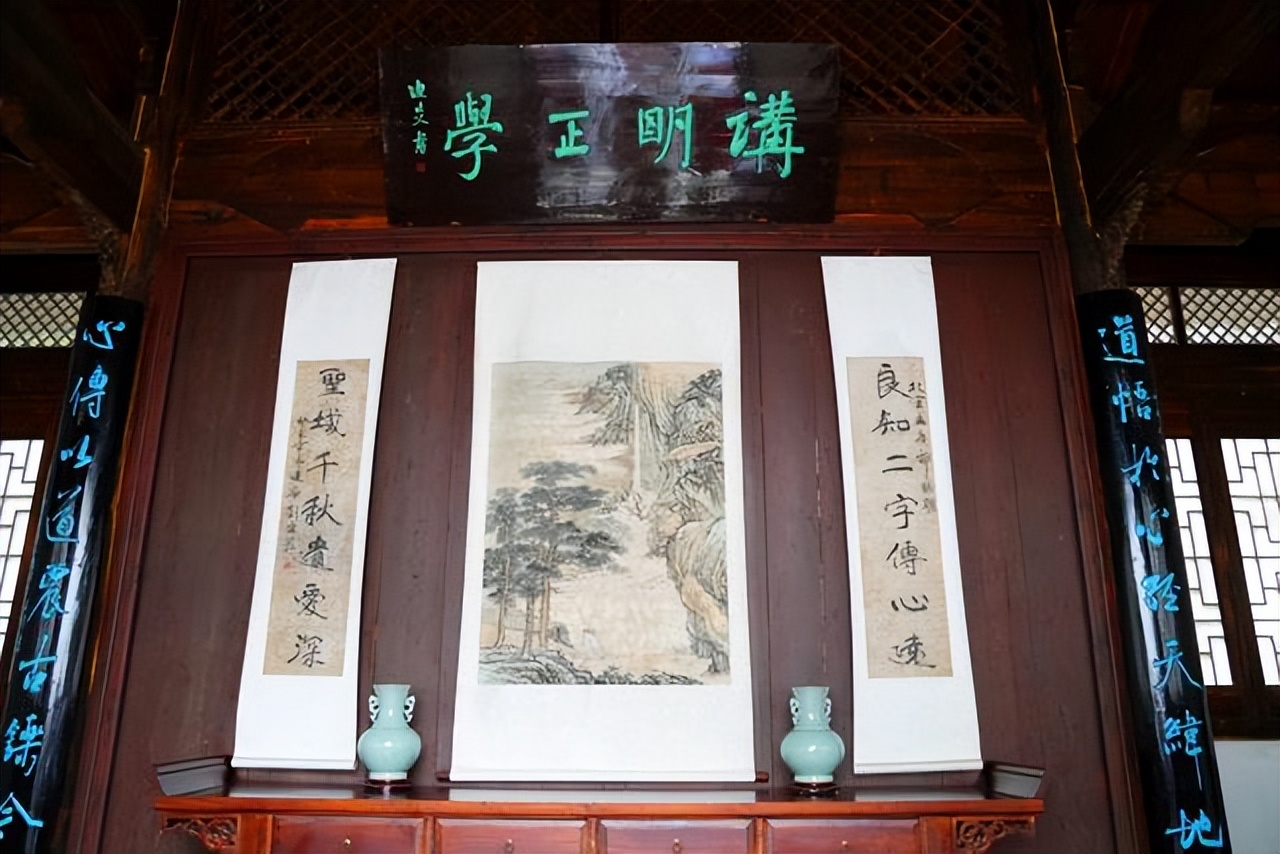 講明正學
道悟於心經天緯地
良知二字傳心遠
聖域千秋遺愛深
心傳以道震古鑠今